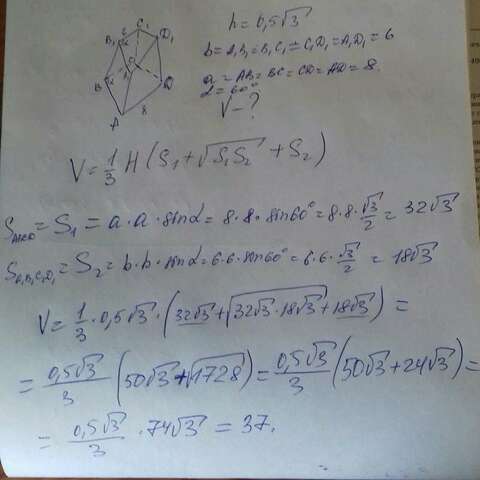 h = 0,5√3
b = A₁B₁ = B₁C₁ = C₁D₁ = A₁D₁ = 6
a = AB = BC = CD = AD = 8
α = 60°
V - ?
B₁ C₁ D₁
B C D
A 8
V = 1/3 H (S₁ + √S₁S₂ + S₂)
S_ABCD = S₁ = a · a · sin α = 8 · 8 · sin 60° = 8 · 8 · √3/2 = 32√3
S_A₁B₁C₁D₁ = S₂ = b · b · sin α = 6 · 6 · sin 60° = 6 · 6 · √3/2 = 18√3
V = 1/3 · 0,5√3 · (32√3 + √32√3 · 18√3 + 18√3) =
= 0,5√3/3 (50√3 + √1728) = 0,5√3/3 (50√3 + 24√3) =
= 0,5√3/3 · 74√3 = 37.